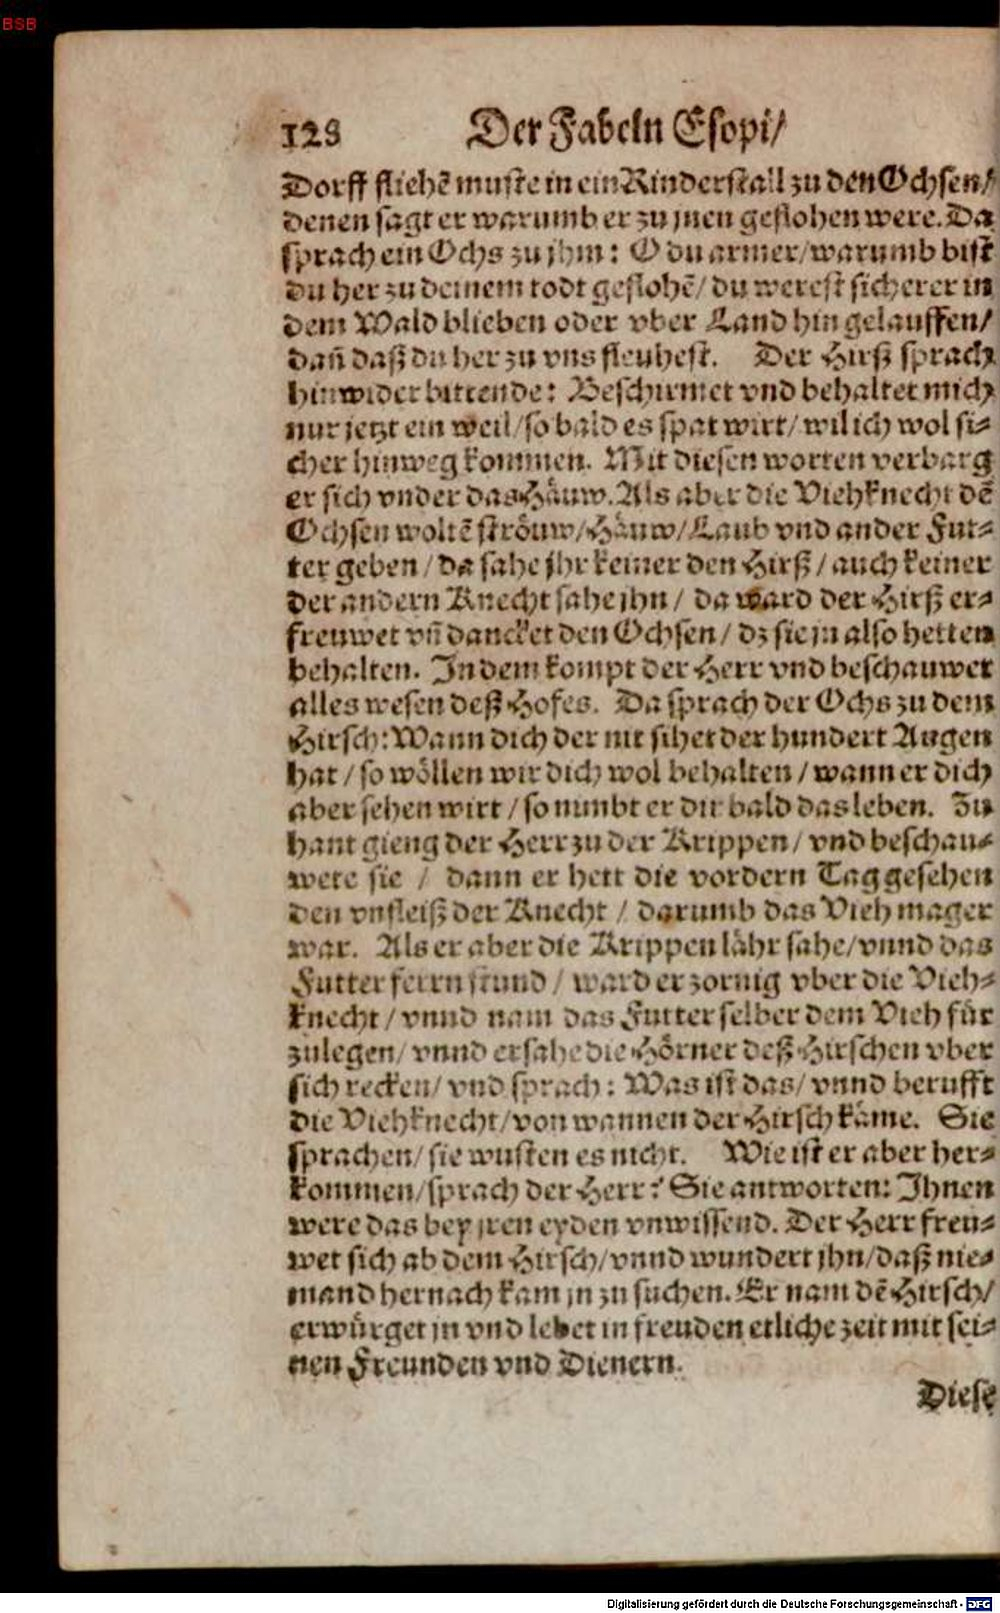 BSB
128 Der Fabeln Esopi/
Dorff fliehẽ muste in ein Rinderstall zu den Ochsen/
denen sagt er warumb er zu jnen geflohen were. Da
sprach ein Ochs zu jhm: O du armer/warumb bist
du her zu deinem todt geflohẽ/ du werest sicherer in
dem Wald blieben oder vber Land hin gelauffen/
dañ daß du her zu vns fleuhest. Der Hirß sprach
hinwider bittende: Beschirmet vnd behaltet mich
nur jetzt ein weil/so bald es spat wirt/ wil ich wol si-
cher hinweg kommen. Mit diesen worten verbarg
er sich vnder das Häuw. Als aber die Viehknecht dẽ
Ochsen woltẽ ströuw/Häuw/Laub vnd ander Fut-
ter geben / da sahe jhr keiner den Hirß / auch keiner
der andern Knecht sahe jhn / da ward der Hirß er-
freuwet vñ dancket den Ochsen / dz sie jn also hetten
behalten. In dem kompt der Herr vnd beschauwet
alles wesen deß Hofes. Da sprach der Ochs zu dem
Hirsch: Wann dich der nit sihet der hundert Augen
hat / so wöllen wir dich wol behalten / wann er dich
aber sehen wirt / so nimbt er dir bald das leben. Zu
hant gieng der Herr zu der Krippen / vnd beschau-
wete sie / dann er hett die vordern Tag gesehen
den vnfleiß der Knecht / darumb das Vieh mager
war. Als er aber die Krippen lähr sahe/vnnd das
Futter ferrn stund / ward er zornig vber die Vieh-
knecht / vnnd nam das Futter selber dem Vieh für
zulegen/ vnnd ersahe die Hörner deß Hirschen vber
sich recken/ vnd sprach: Was ist das/ vnnd berufft
die Viehknecht/von wannen der Hirsch käme. Sie
sprachen/ sie wusten es nicht. Wie ist er aber her-
kommen/sprach der Herr? Sie antworten: Ihnen
were das bey jren eyden vnwissend. Der Herr freu-
wet sich ab dem Hirsch/vnnd wundert jhn/daß nie-
mand hernach kam jn zu suchen. Er nam dẽ Hirsch/
erwürget jn vnd lebet in freuden etliche zeit mit sei-
nen Freunden vnd Dienern.
Diese
Digitalisierung gefördert durch die Deutsche Forschungsgemeinschaft - DFG